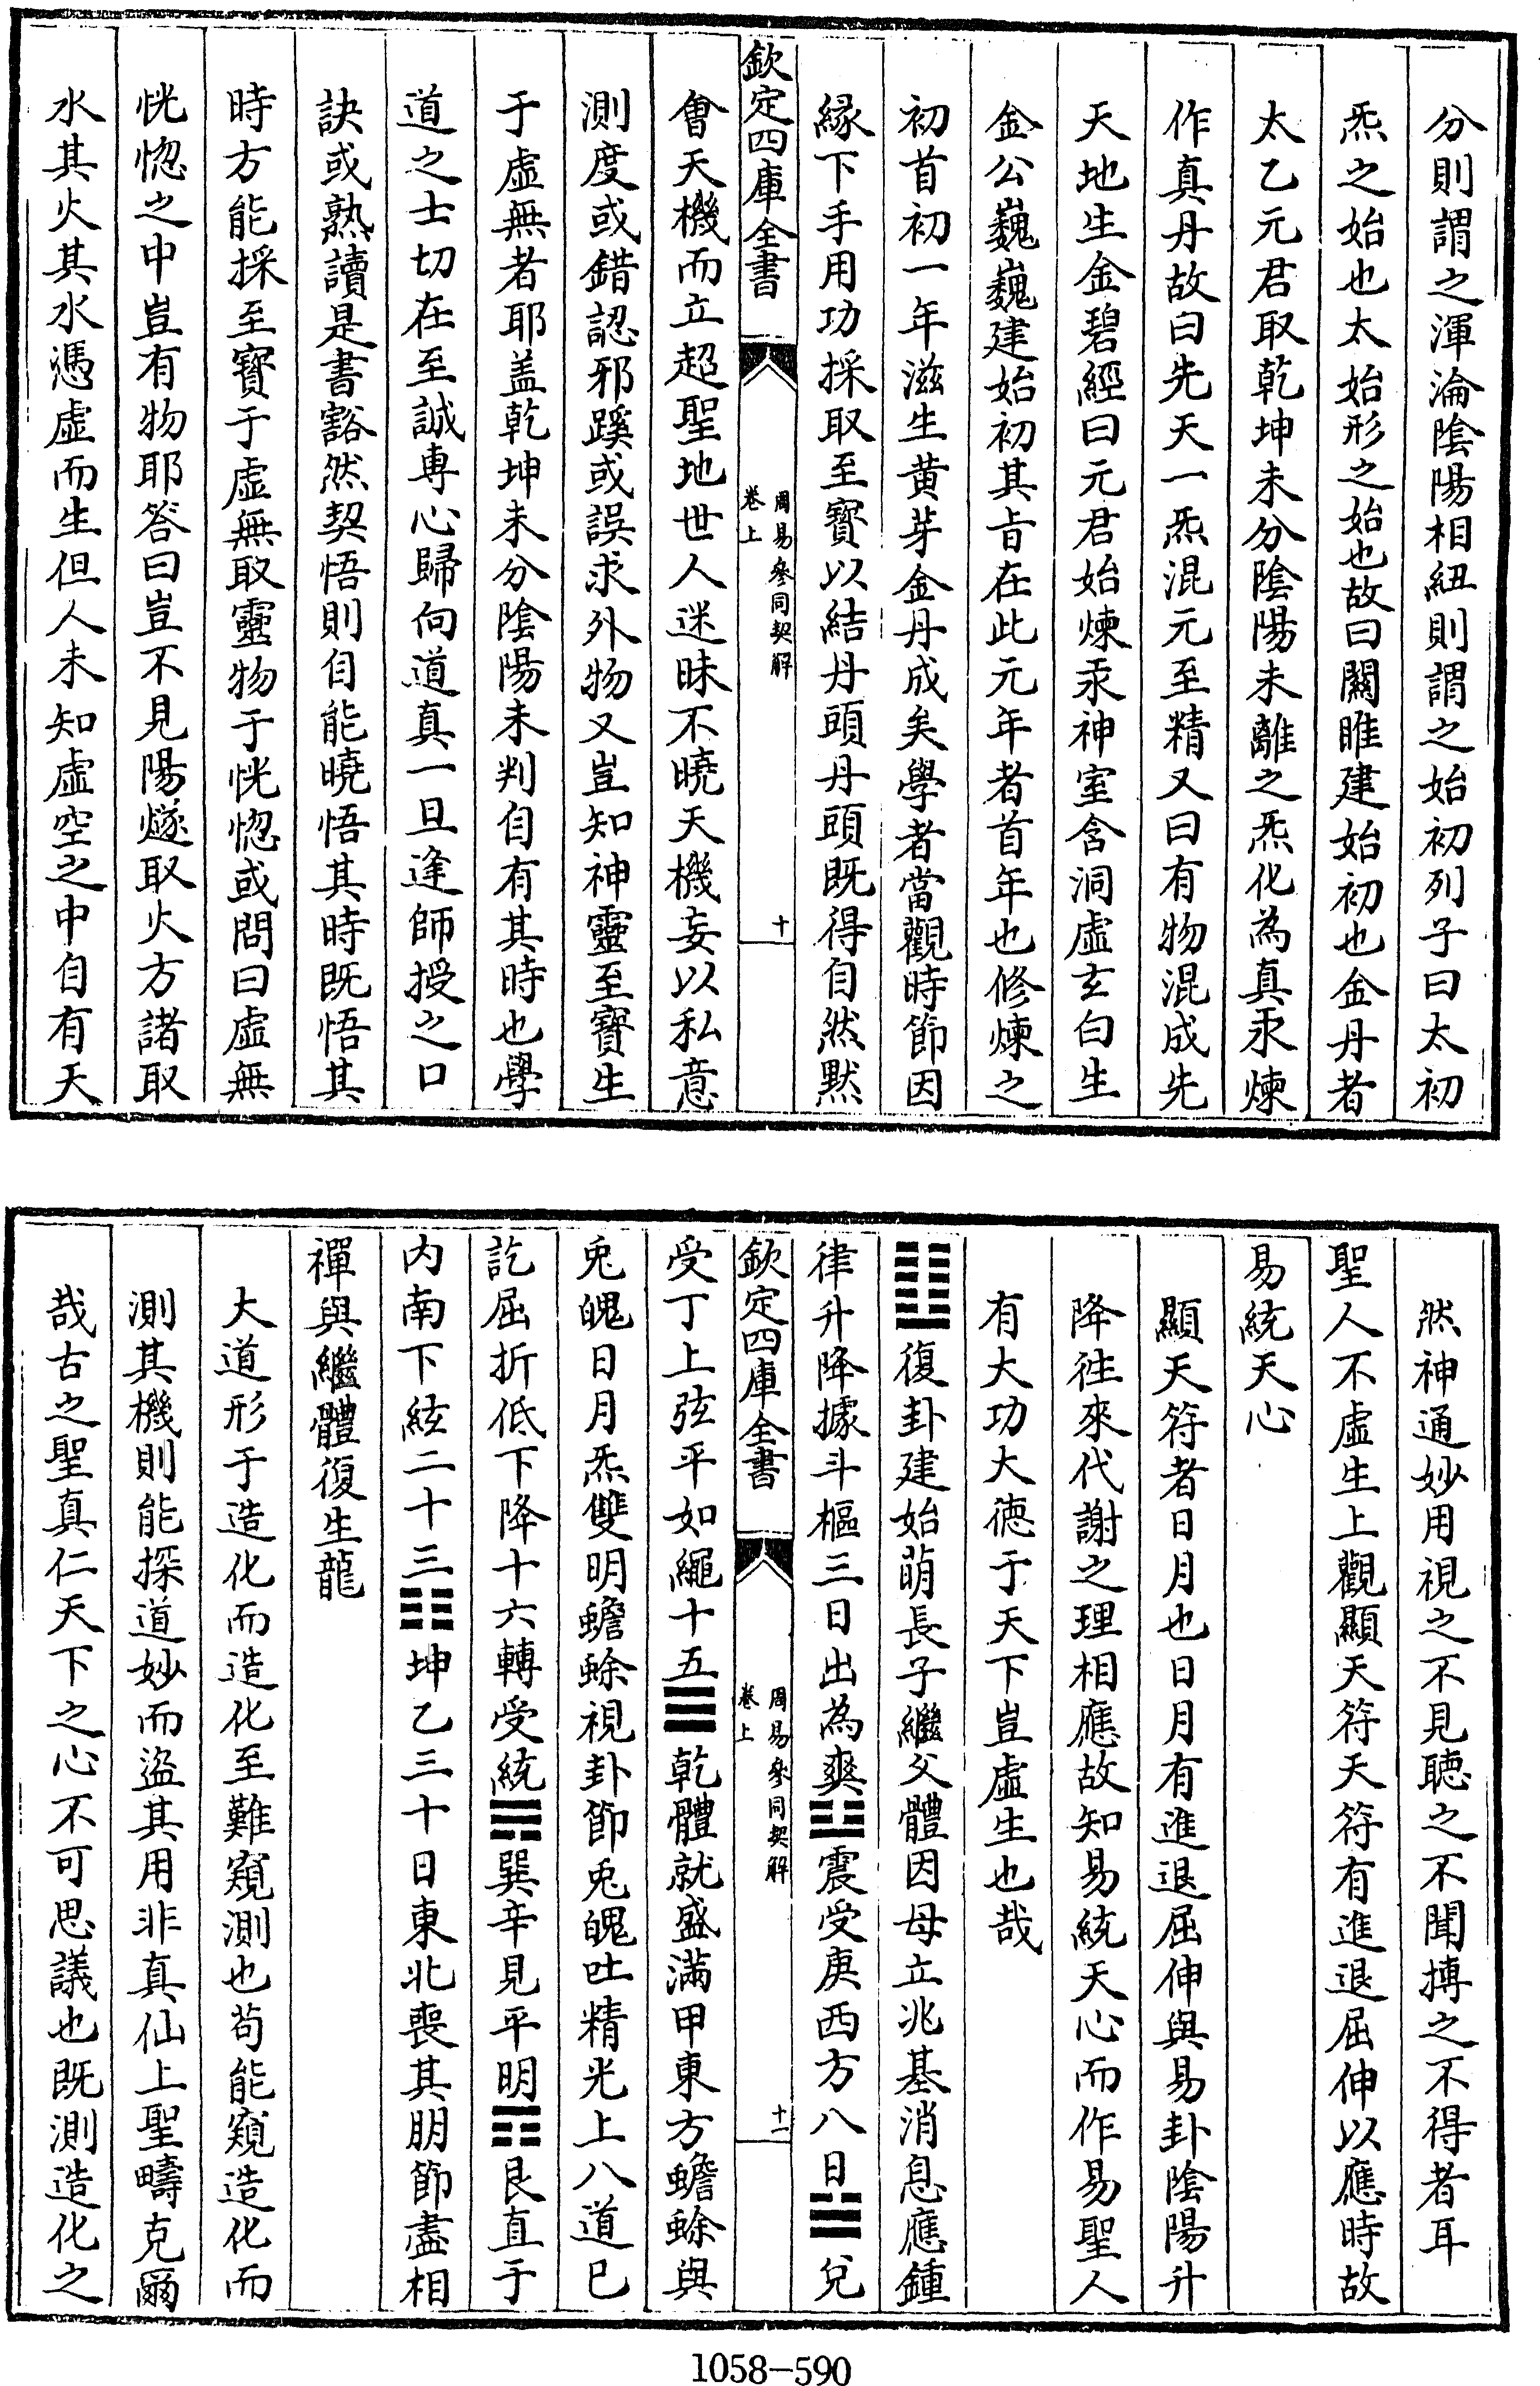 分則謂之渾淪陰陽相紐則謂之始初列子曰太初
炁之始也太始形之始也故曰關雎建始初也金丹者
太乙元君取乾坤未分陰陽未離之炁化為真汞煉
作真丹故曰先天一炁混元至精又曰有物混成先
天地生金碧經曰元君始煉汞神室含洞虛玄白生
金公巍巍建始初其旨在此元年者首年也修煉之
初首初一年滋生黄芽金丹成矣學者當觀時節因
縁下手用功採取至寳以結丹頭丹頭既得自然黙
欽定四庫全書
周易參同契解
卷上
十
㑹天機而立超聖地世人迷昧不曉天機妄以私意
測度或錯認邪蹊或誤求外物又豈知神靈至寳生
于虛無者耶盖乾坤未分陰陽未判自有其時也學
道之士切在至誠専心歸向道真一旦逢師授之口
訣或熟讀是書豁然契悟則自能曉悟其時既悟其
時方能採至寳于虛無取靈物于恍惚或問曰虛無
恍惚之中豈有物耶答曰豈不見陽燧取火方諸取
水其火其水憑虛而生但人未知虛空之中自有天
然神通妙用視之不見聴之不聞搏之不得者耳
聖人不虛生上觀顯天符天符有進退屈伸以應時故
易統天心
顯天符者日月也日月有進退屈伸與易卦陰陽升
降徃來代謝之理相應故知易統天心而作易聖人
有大功大徳于天下豈虛生也哉
䷗復卦建始萌長子繼父體因母立兆基消息應鍾
律升降據斗樞三日出為爽☳震受庚西方八日☱兌
受丁上弦平如繩十五☰乾體就盛滿甲東方蟾蜍與
欽定四庫全書
周易參同契解
卷上
十一
兎魄日月炁雙明蟾蜍視卦節兎魄吐精光上八道已
訖屈折低下降十六轉受統☴巽辛見平明☶艮直于
内南下絃二十三☷坤乙三十日東北喪其朋節盡相
禪與繼體復生龍
大道形于造化而造化至難窺測也茍能窺造化而
測其機則能探道妙而盜其用非真仙上聖疇克爾
哉古之聖真仁天下之心不可思議也既測造化之
1058-590